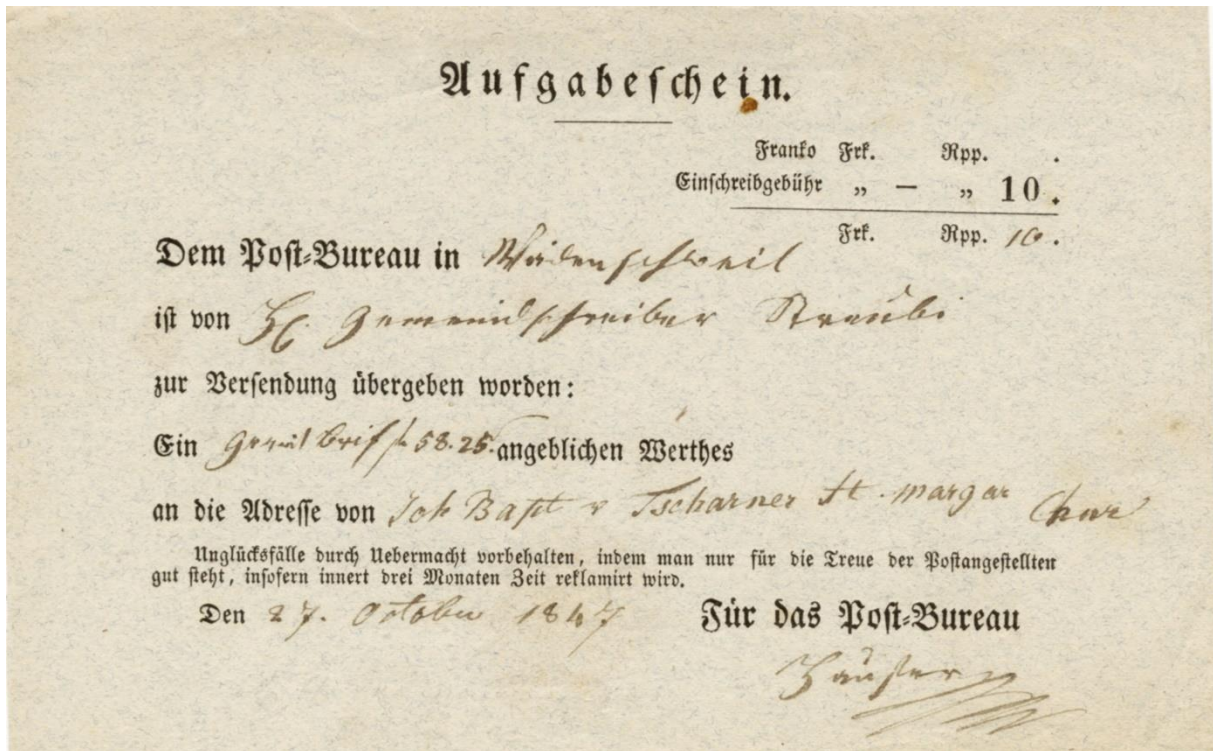 Aufgabeschein.
Franko Frk. Rpp. .
Einschreibgebühr „ — „ 10.
Frk. Rpp. 10.
Dem Post-Bureau in Wädenschweil
ist von H. Gemeindschreiber Sträubi
zur Versendung übergeben worden:
Ein 58.25. angeblichen Werthes
an die Adresse von Joh Bapt v Tscharner St. Margar Chur
Unglücksfälle durch Uebermacht vorbehalten, indem man nur für die Treue der Postangestellten
gut steht, insofern innert drei Monaten Zeit reklamirt wird.
Den 27. October 1847
Für das Post-Bureau
Hauser